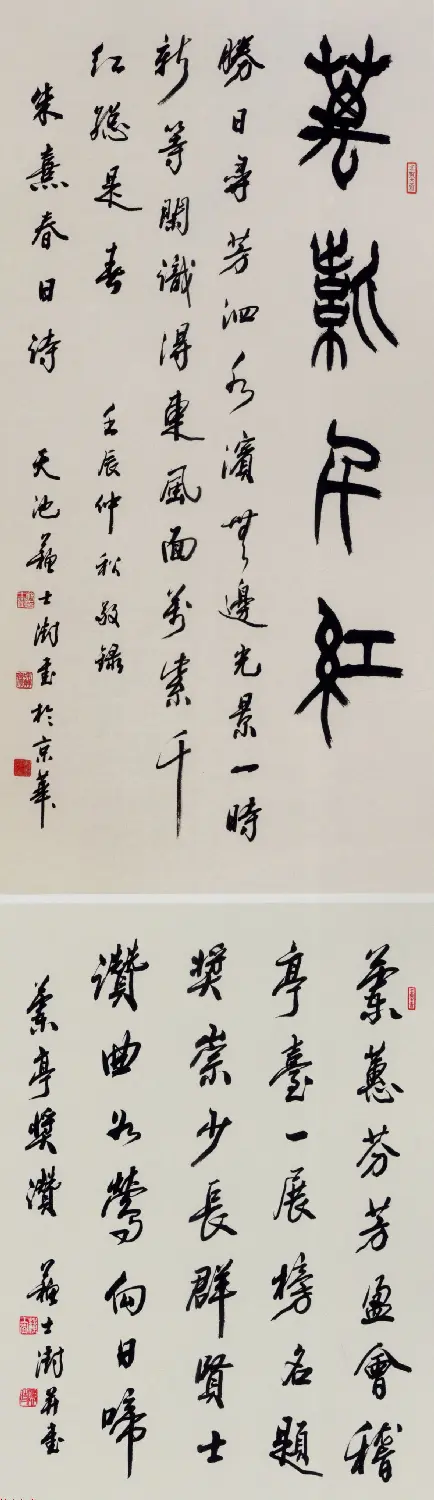 萬紫千紅
勝日尋芳泗水濱無邊光景一時
新等閑識得東風面萬紫千
紅總是春 壬辰仲秋敬錄
朱熹春日詩 天池蘇士澍書於京華
蘭蕙芬芳盈會稽
亭臺一展榜名題
獎崇少長群賢士
讚曲如鶯向日啼
蘭亭獎讚 蘇士澍并書